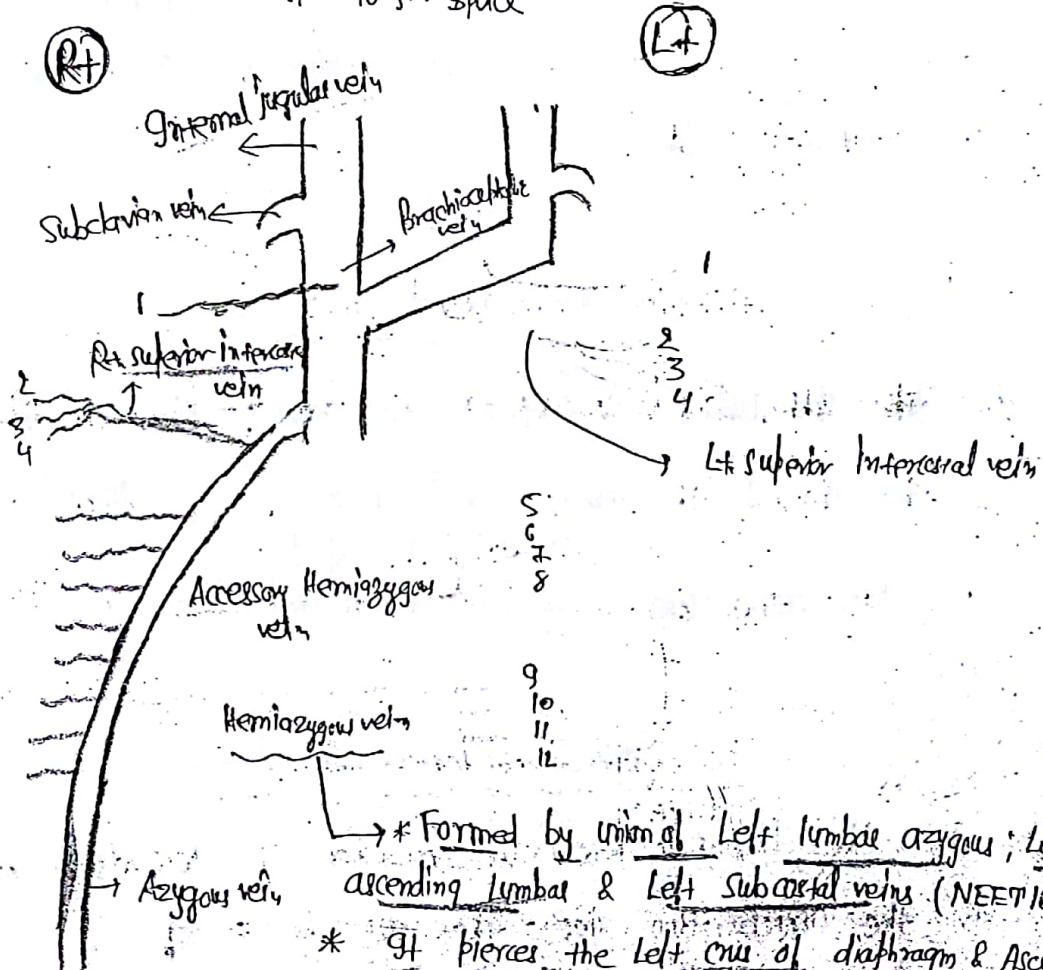 space
Rt
Lt
Internal jugular vein
Subclavian vein
Brachiocephalic
vein
1
1
Rt superior intercos
vein
2
3
4
2
3
4
Lt superior Intercostal vein
5
6
7
8
Accessory Hemiazygous
vein
9
10
11
12
Hemiazygous vein
* Formed by union of Left lumbar azygous ; L
Azygous vein
ascending lumbar & Left subcostal veins (NEET
* It pierces the Left crus of diaphragm & Asc